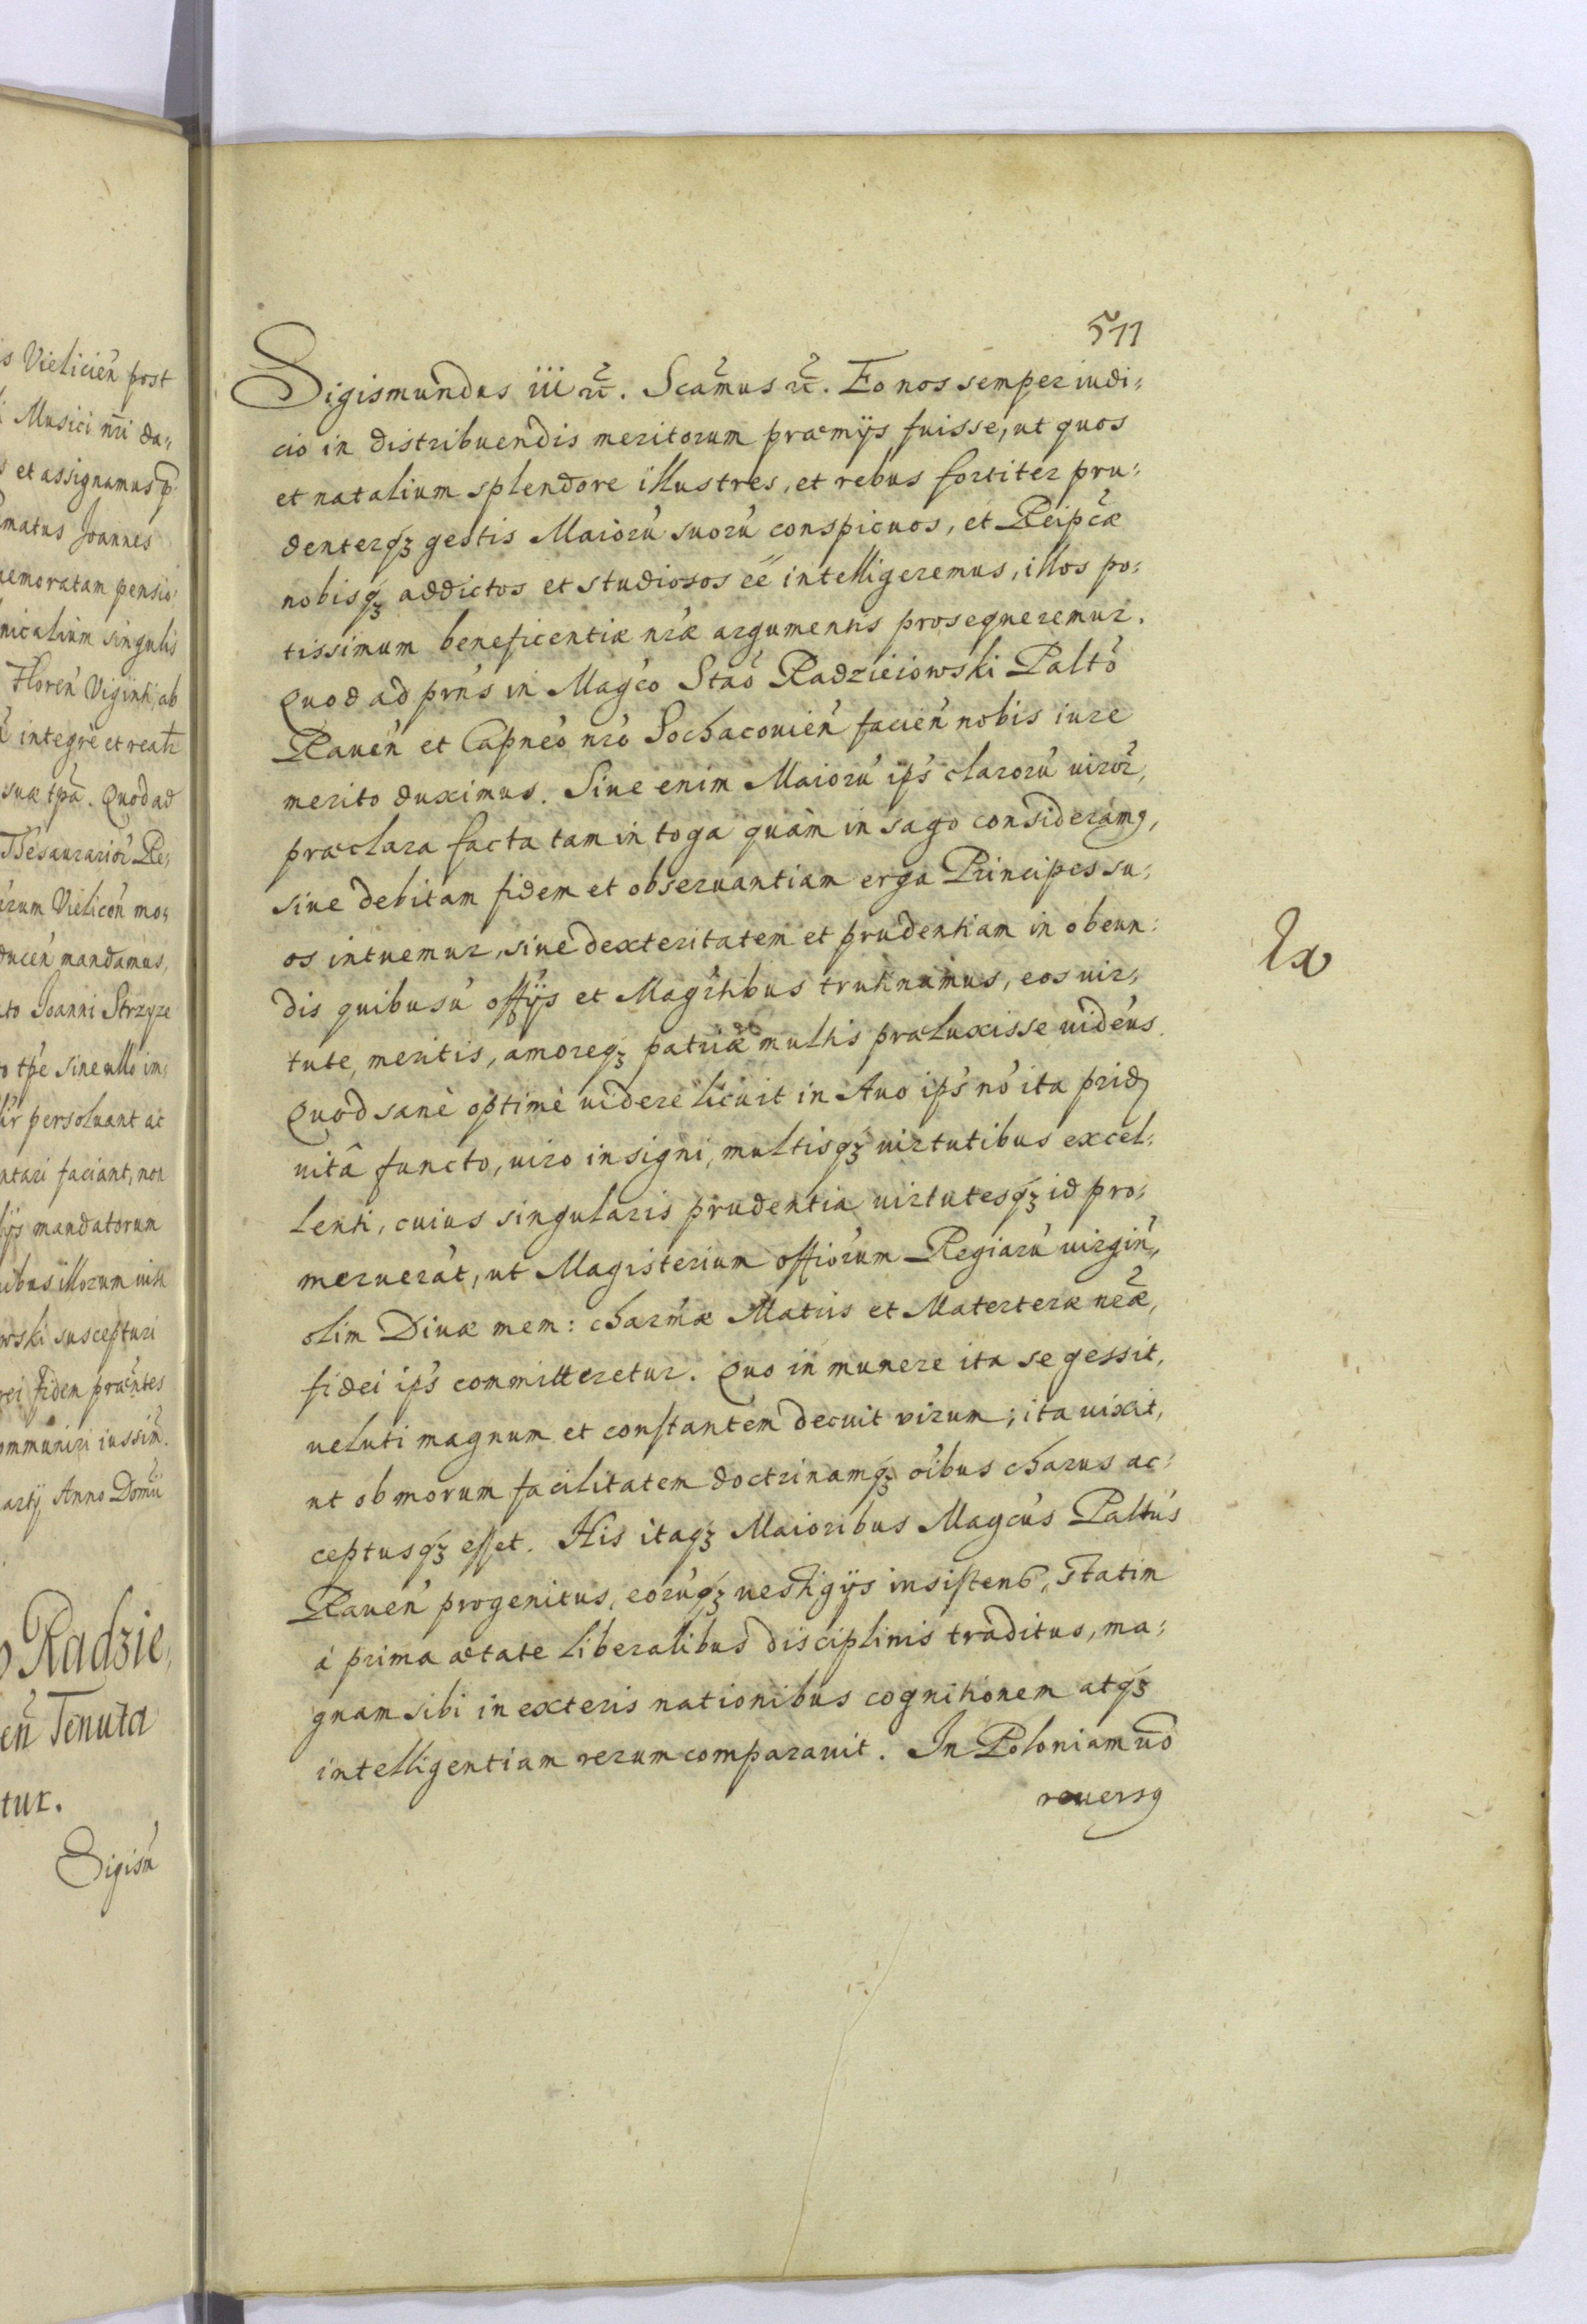 is Vielicień post
i Musici nr̃i da,
s et assignamus
matus Joannes
aemoratam pensio
nicalium singulis
Floreń Viginti, ab
integrè et realr
suae tpã. Quod ad
Thesaurarior Re,
arum Vielicoń mo,
ducen mandamus,
to Joanni Strzyze
o tpe sine ullo im,
persoluant ac
ntari faciant, non
ijs mandatorum
ibus illorum
wski suscepturi
rei fidem praentes
ommuniri iussim̃.
artij Anno Domũ
o Radzie,
eñ Tenuta
tur.
Sigism̃
511
Sigismundus iii rc̃. Scãmus rc̃. Eo nos semper iudi,
cio in distribuendis meritorum praemijs fuisse, ut quos
et natalium splendore illustres, et rebus fortiter pru,
denterq́ʒ gestis Maiorú suorú conspicuos, et Reipc̃ae
nobisq́ʒ addictos et studiosos eẽ intelligeremus, illos po,
tissimum beneficentiae nrãe argumentis prosequeremur.
Quod ad prns̃ in Magc̃o Stão Radzieiowski Paltõ
Raueń et Capneõ nrõ Sochacouień facień nobis iure
merito duximus. Siue enim Maiorú ips̃ clarorú uiror̃,
praeclara facta tam in toga quàm in sago consideramꝰ,
siue debitam fidem et obseruantiam erga Principes su,
os intuemur, siue dexteritatem et prudentiam in obeun:
dis quibusũ offijs̃ et Magrtibus trutinamus, eos uir,
tute, meritis, amoreq́ʒ patriae multis praeluxisse uideũs.
Quod sanè optimè uidere licuit in Auo ips̃ nõ ita prid
uitâ functo, uiro insigni, multisq́ʒ uirtutibus excel,
lenti, cuius singularis prudentia uirtutesq́ʒ id pro,
meruerãt, ut Magisterium offiõrum Regiarú uirgiń,
olim Diuae mem: charm̃ae Matris et Materterae nrãe,
fidei ips̃ committeretur. Quo in munere ita se gessit,
ueluti magnum et constantem decuit virum; ita uixit,
ut ob morum facilitatem doctrinamq́ʒ oĩbus charus ac,
ceptusq́ʒ esset. His itaq́ʒ Maioribus Magcũs Paltũs
Raueń progenitus, eorúq́ʒ uestigijs insistens, statim
à prima aetate liberalibus disciplinis traditus, ma,
gnam sibi in exteris nationibus cognitionem atq́ʒ
intelligentiam rerum comparauit. In Poloniam uõ
reuersꝰ